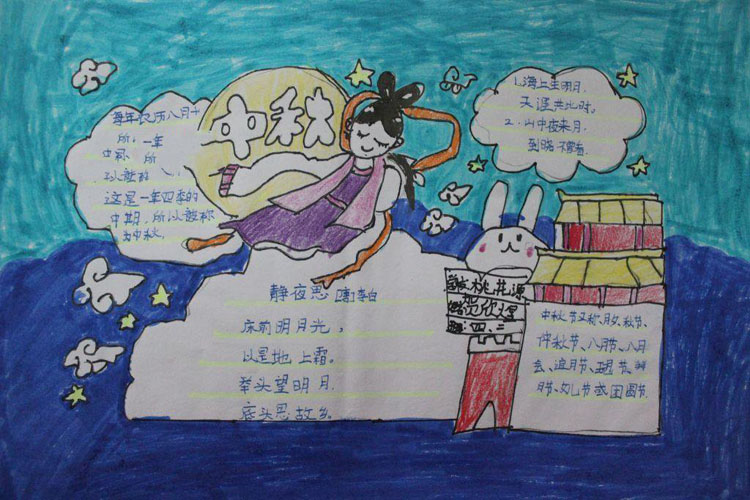 中秋
每年农历八月十
所. 一年
中 所
以
这是一年四季的
中期,所以 称
为中秋.
1.海上生明月,
天涯共此时.
2.山中夜来月.
到晓不曾看.
静夜思 [唐]李白
床前明月光,
以是地上霜.
举头望明月.
底头思故乡.
桃 源
欣
班:四、二
中秋节又称、月夕、秋节、
仲秋节、八月节、八月
会、追月节、玩月节、拜
月节、女儿节或团圆节.